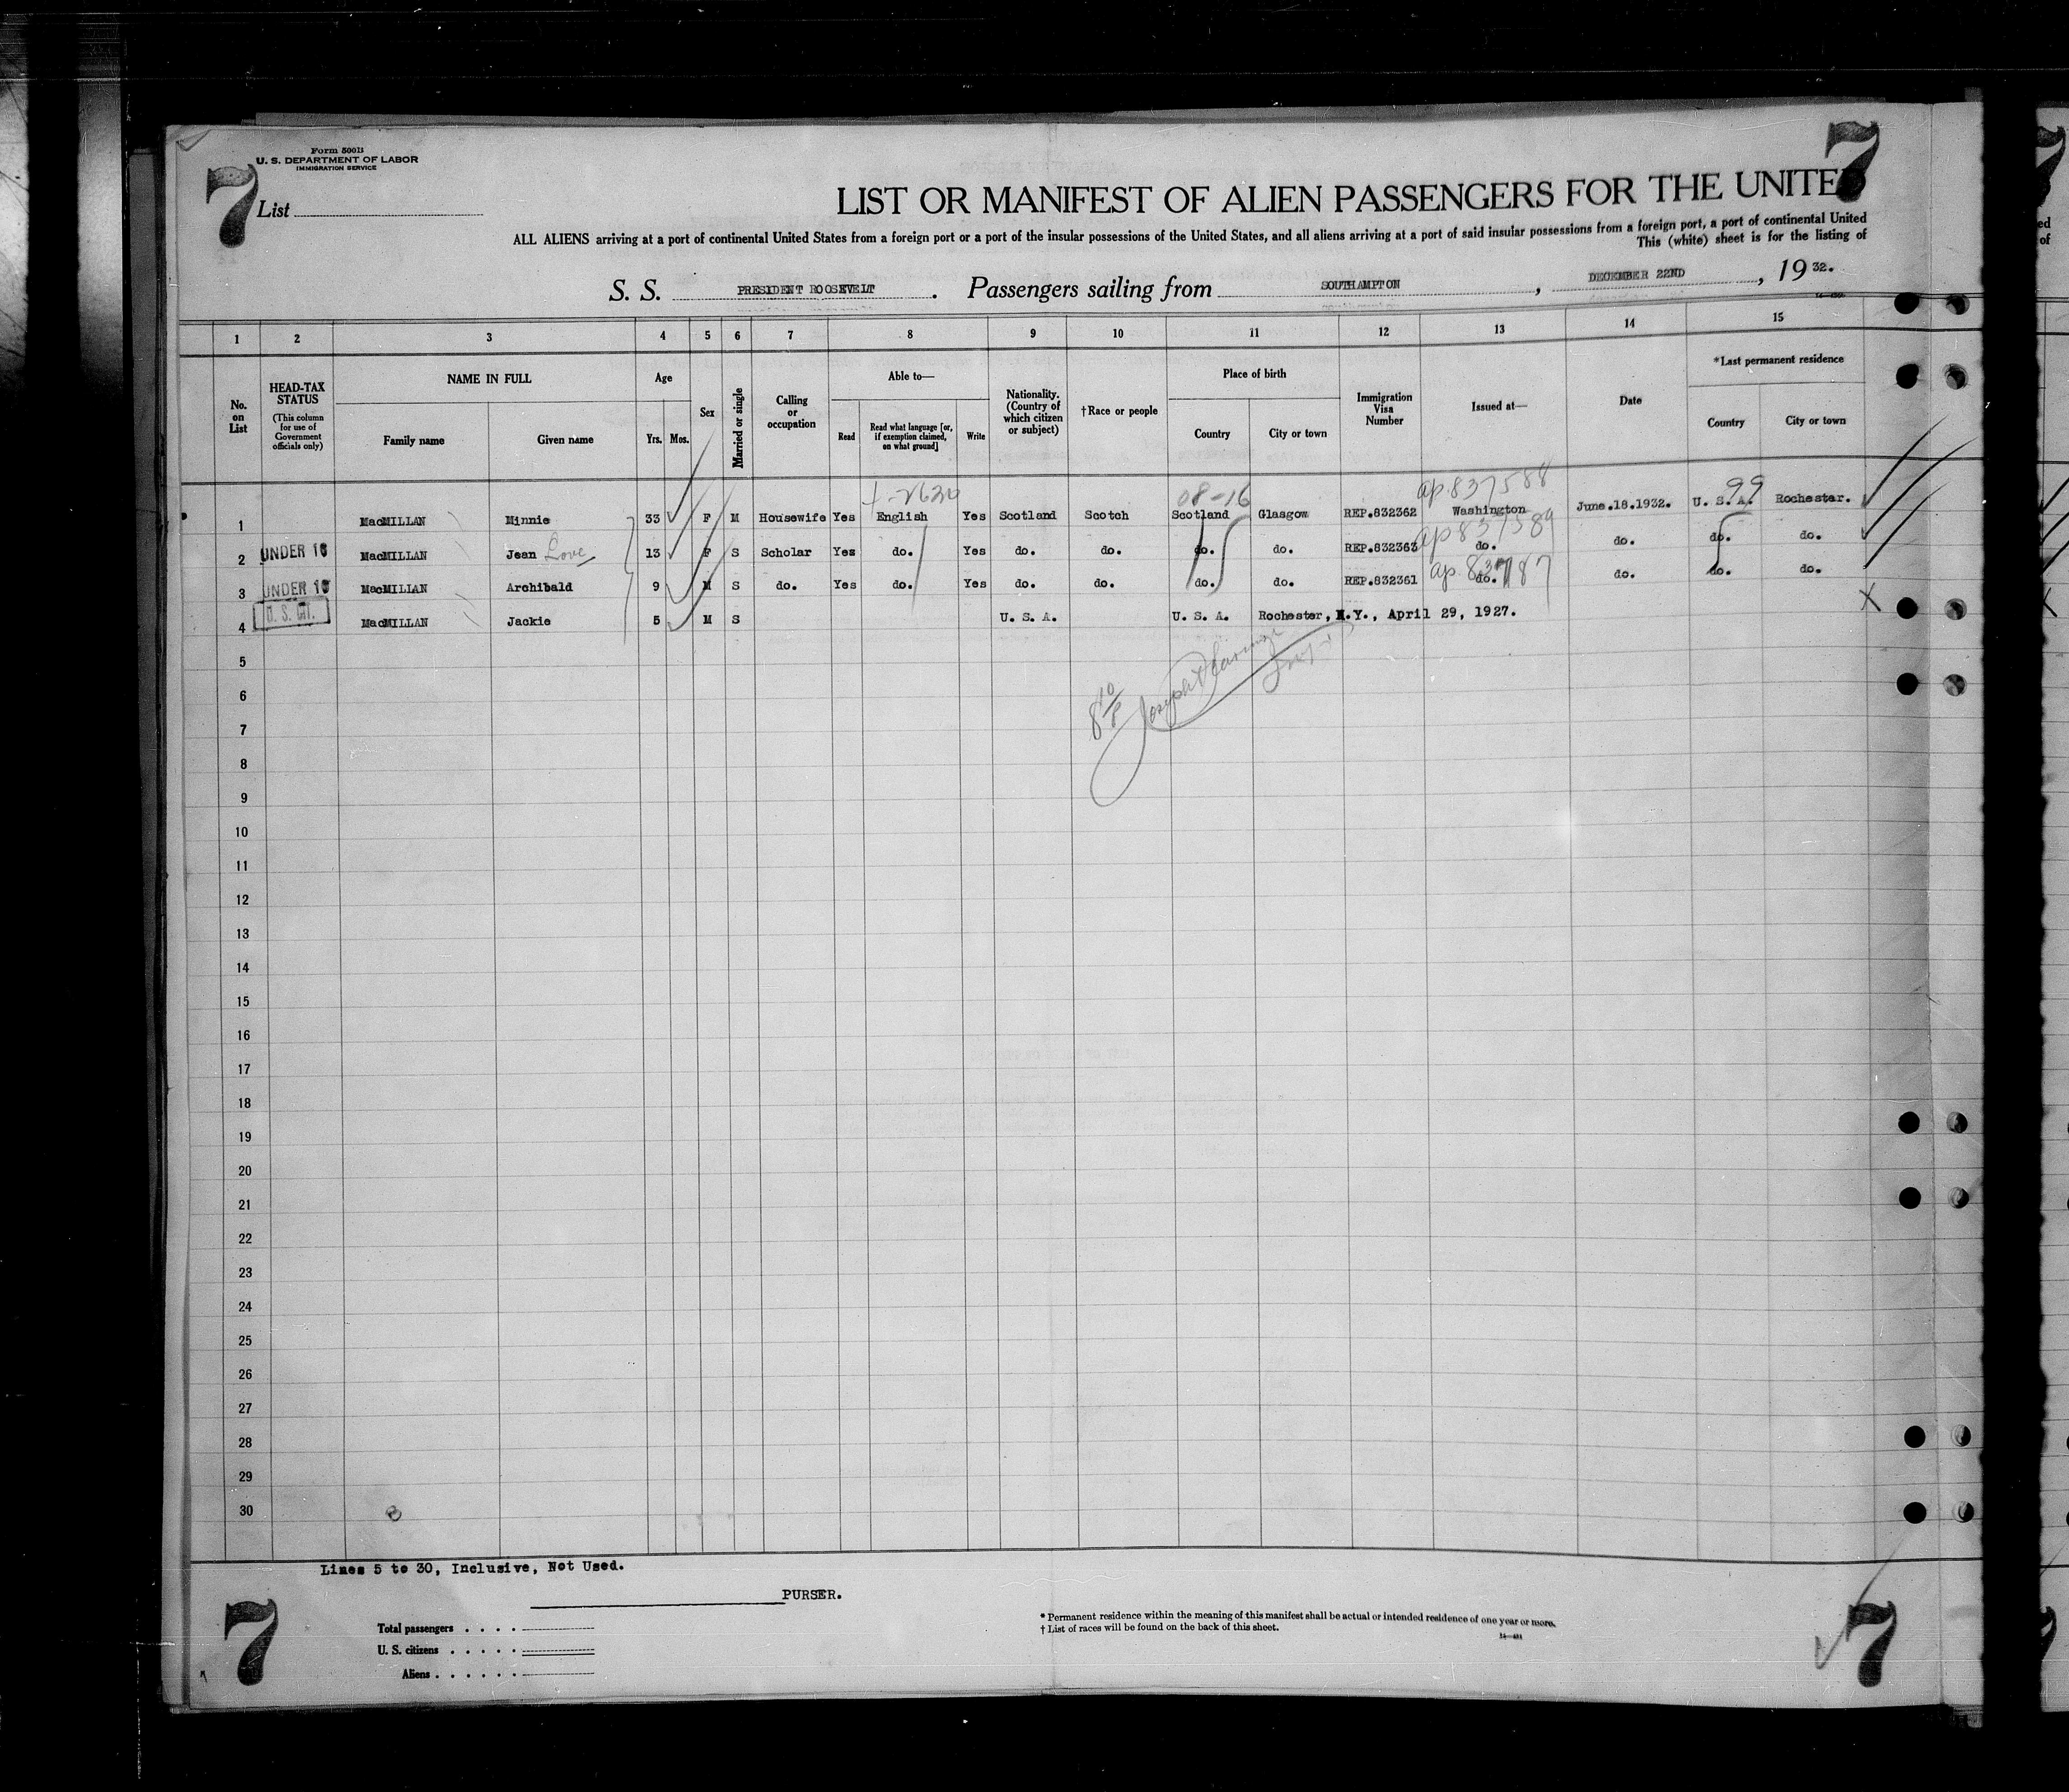 Form 500B
U. S. DEPARTMENT OF LABOR
IMMIGRATION SERVICE
7
7
List
LIST OR MANIFEST OF ALIEN PASSENGERS FOR THE UNITE
ALL ALIENS arriving at a port of continental United States from a foreign port or a port of the insular possessions of the United States, and all aliens arriving at a port of said insular possessions from a foreign port, a port of continental United
This (white) sheet is for the listing of
S. S. PRESIDENT ROOSEVELT. Passengers sailing from SOUTHAMPTON, DECEMBER 22ND, 1932.
1 2 3 4 5 6 7 8 9 10 11 12 13 14 15
No. on List
HEAD-TAX STATUS
(This column for use of Government officials only)
NAME IN FULL
Family name Given name
Age
Yrs. Mos.
Sex
Married or single
Calling or occupation
Able to—
Read
Read what language [or, if exemption claimed, on what ground]
Write
Nationality. (Country of which citizen or subject)
†Race or people
Place of birth
Country City or town
Immigration Visa Number
Issued at—
Date
*Last permanent residence
Country City or town
08-16 ap.837588 99
1 MacMILLAN Minnie 33 F M Housewife Yes English Yes Scotland Scotch Scotland Glasgow REP.832362 Washington June.18.1932. U. S. A. Rochester.
ap 837589
2 UNDER 16 MacMILLAN Jean Love 13 F S Scholar Yes do. Yes do. do. do. do. REP.832363 do. do. do. do.
3 UNDER 16 MacMILLAN Archibald 9 M S do. Yes do. Yes do. do. do. do. REP.832361 do. do. do. do.
4 U. S. CIT. MacMILLAN Jackie 5 M S U. S. A. U. S. A. Rochester, N.Y., April 29, 1927.
5
6
7
8
9
10
11
12
13
14
15
16
17
18
19
20
21
22
23
24
25
26
27
28
29
30
Lines 5 to 30, Inclusive, Not Used.
PURSER.
Total passengers
U. S. citizens
Aliens
* Permanent residence within the meaning of this manifest shall be actual or intended residence of one year or more.
† List of races will be found on the back of this sheet.
7
7